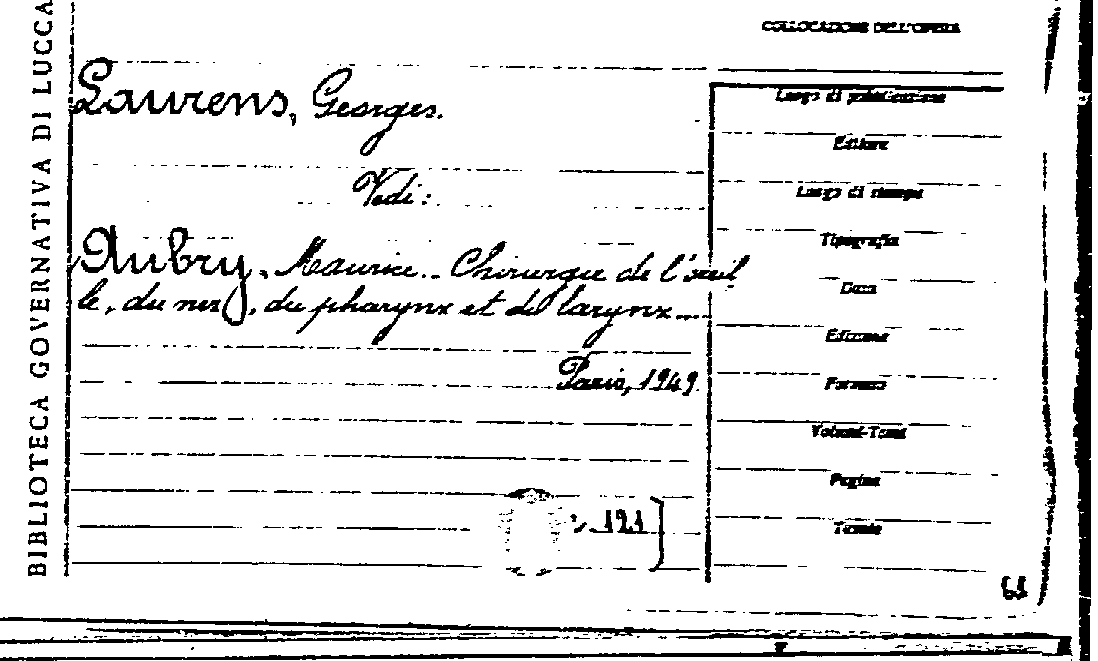 BIBLIOTECA GOVERNATIVA DI LUCCA
COLLOCAZIONE DELL'OPERA
Laurens, Georges.
Vedi:
Aubry, Maurice. - Chirurgie de l'oreil
le, du nez, du pharynx et du larynx...
Paris, 1949.
121]
Luogo di pubblicazione
Editore
Luogo di stampa
Tipografia
Data
Edizione
Formato
Volumi-Tomi
Pagine
Tavole